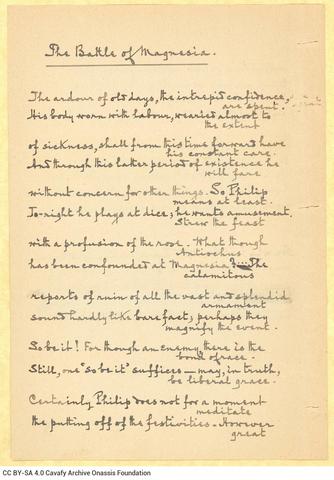 The Battle of Magnesia.
The ardour of old days, the intrepid confidence,
are spent.
His body worn with labour, wearied almost to
the extent
of sickness, shall from this time forward have
his constant care.
And through this latter period of existence he
will fare
without concern for other things. So Philip
means at least.
To-night he plays at dice; he wants amusement.
Strew the feast
with a profusion of the rose. What though
Antiochus
has been confounded at Magnesia? The
calamitous
reports of ruin of all the vast and splendid
armament
sound hardly like bare fact; perhaps they
magnify the event.
So be it! For though an enemy, there is the
bond of race.
Still, one "so be it" suffices — may, in truth,
be liberal grace.
Certainly Philip does not for a moment
meditate
the putting off of the festivities. However
great
CC BY-SA 4.0 Cavafy Archive Onassis Foundation